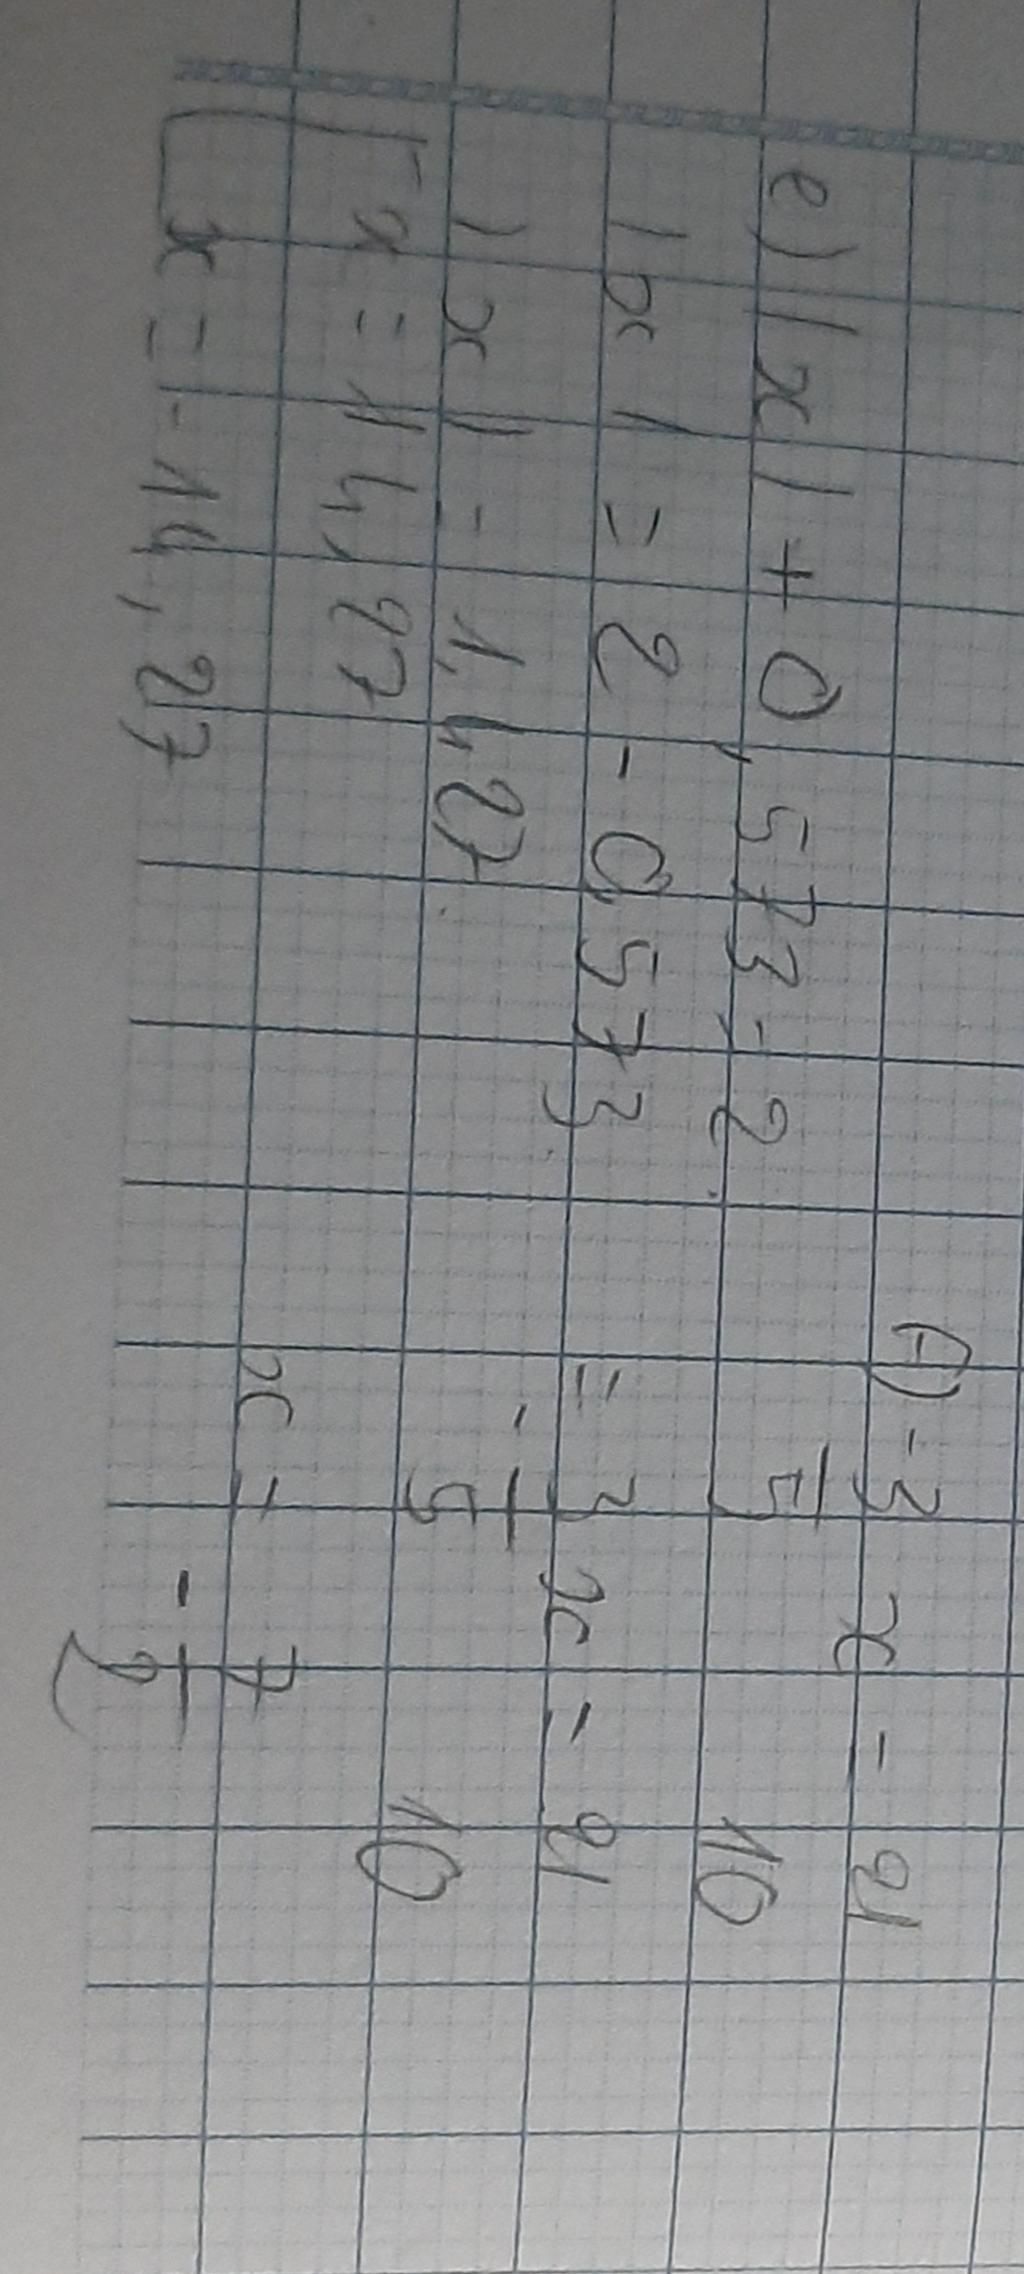 e) |x| + 0,573 = 2
|x| = 2 - 0,573
|x| = 1,427
[x = 14,27
x = -14,27
f) -3/5 x = 21/10
= -3/5 x = 21/10
x = -7/2